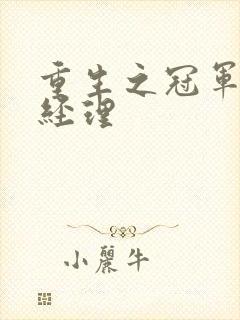 重生之冠軍
經理
小麗牛